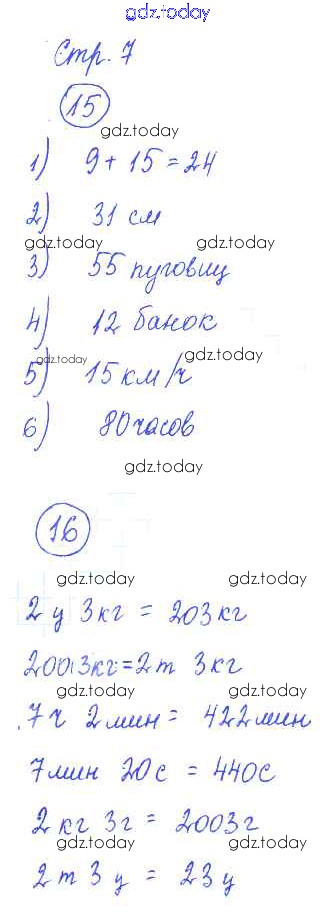 gdz.today
Стр. 7
15
gdz.today
1) 9 + 15 = 24
2) 31 см
gdz.today gdz.today
3) 55 пуговиц
4) 12 банок
gdz.today gdz.today
5) 15 км/ч
6) 80 часов
gdz.today
16
gdz.today gdz.today
2 ц 3 кг = 203 кг
2003 кг = 2 т 3 кг
gdz.today gdz.today
7 ч 2 мин = 422 мин
7 мин 20 с = 440 с
gdz.today gdz.today
2 кг 3 г = 2003 г
2 т 3 ц = 23 ц